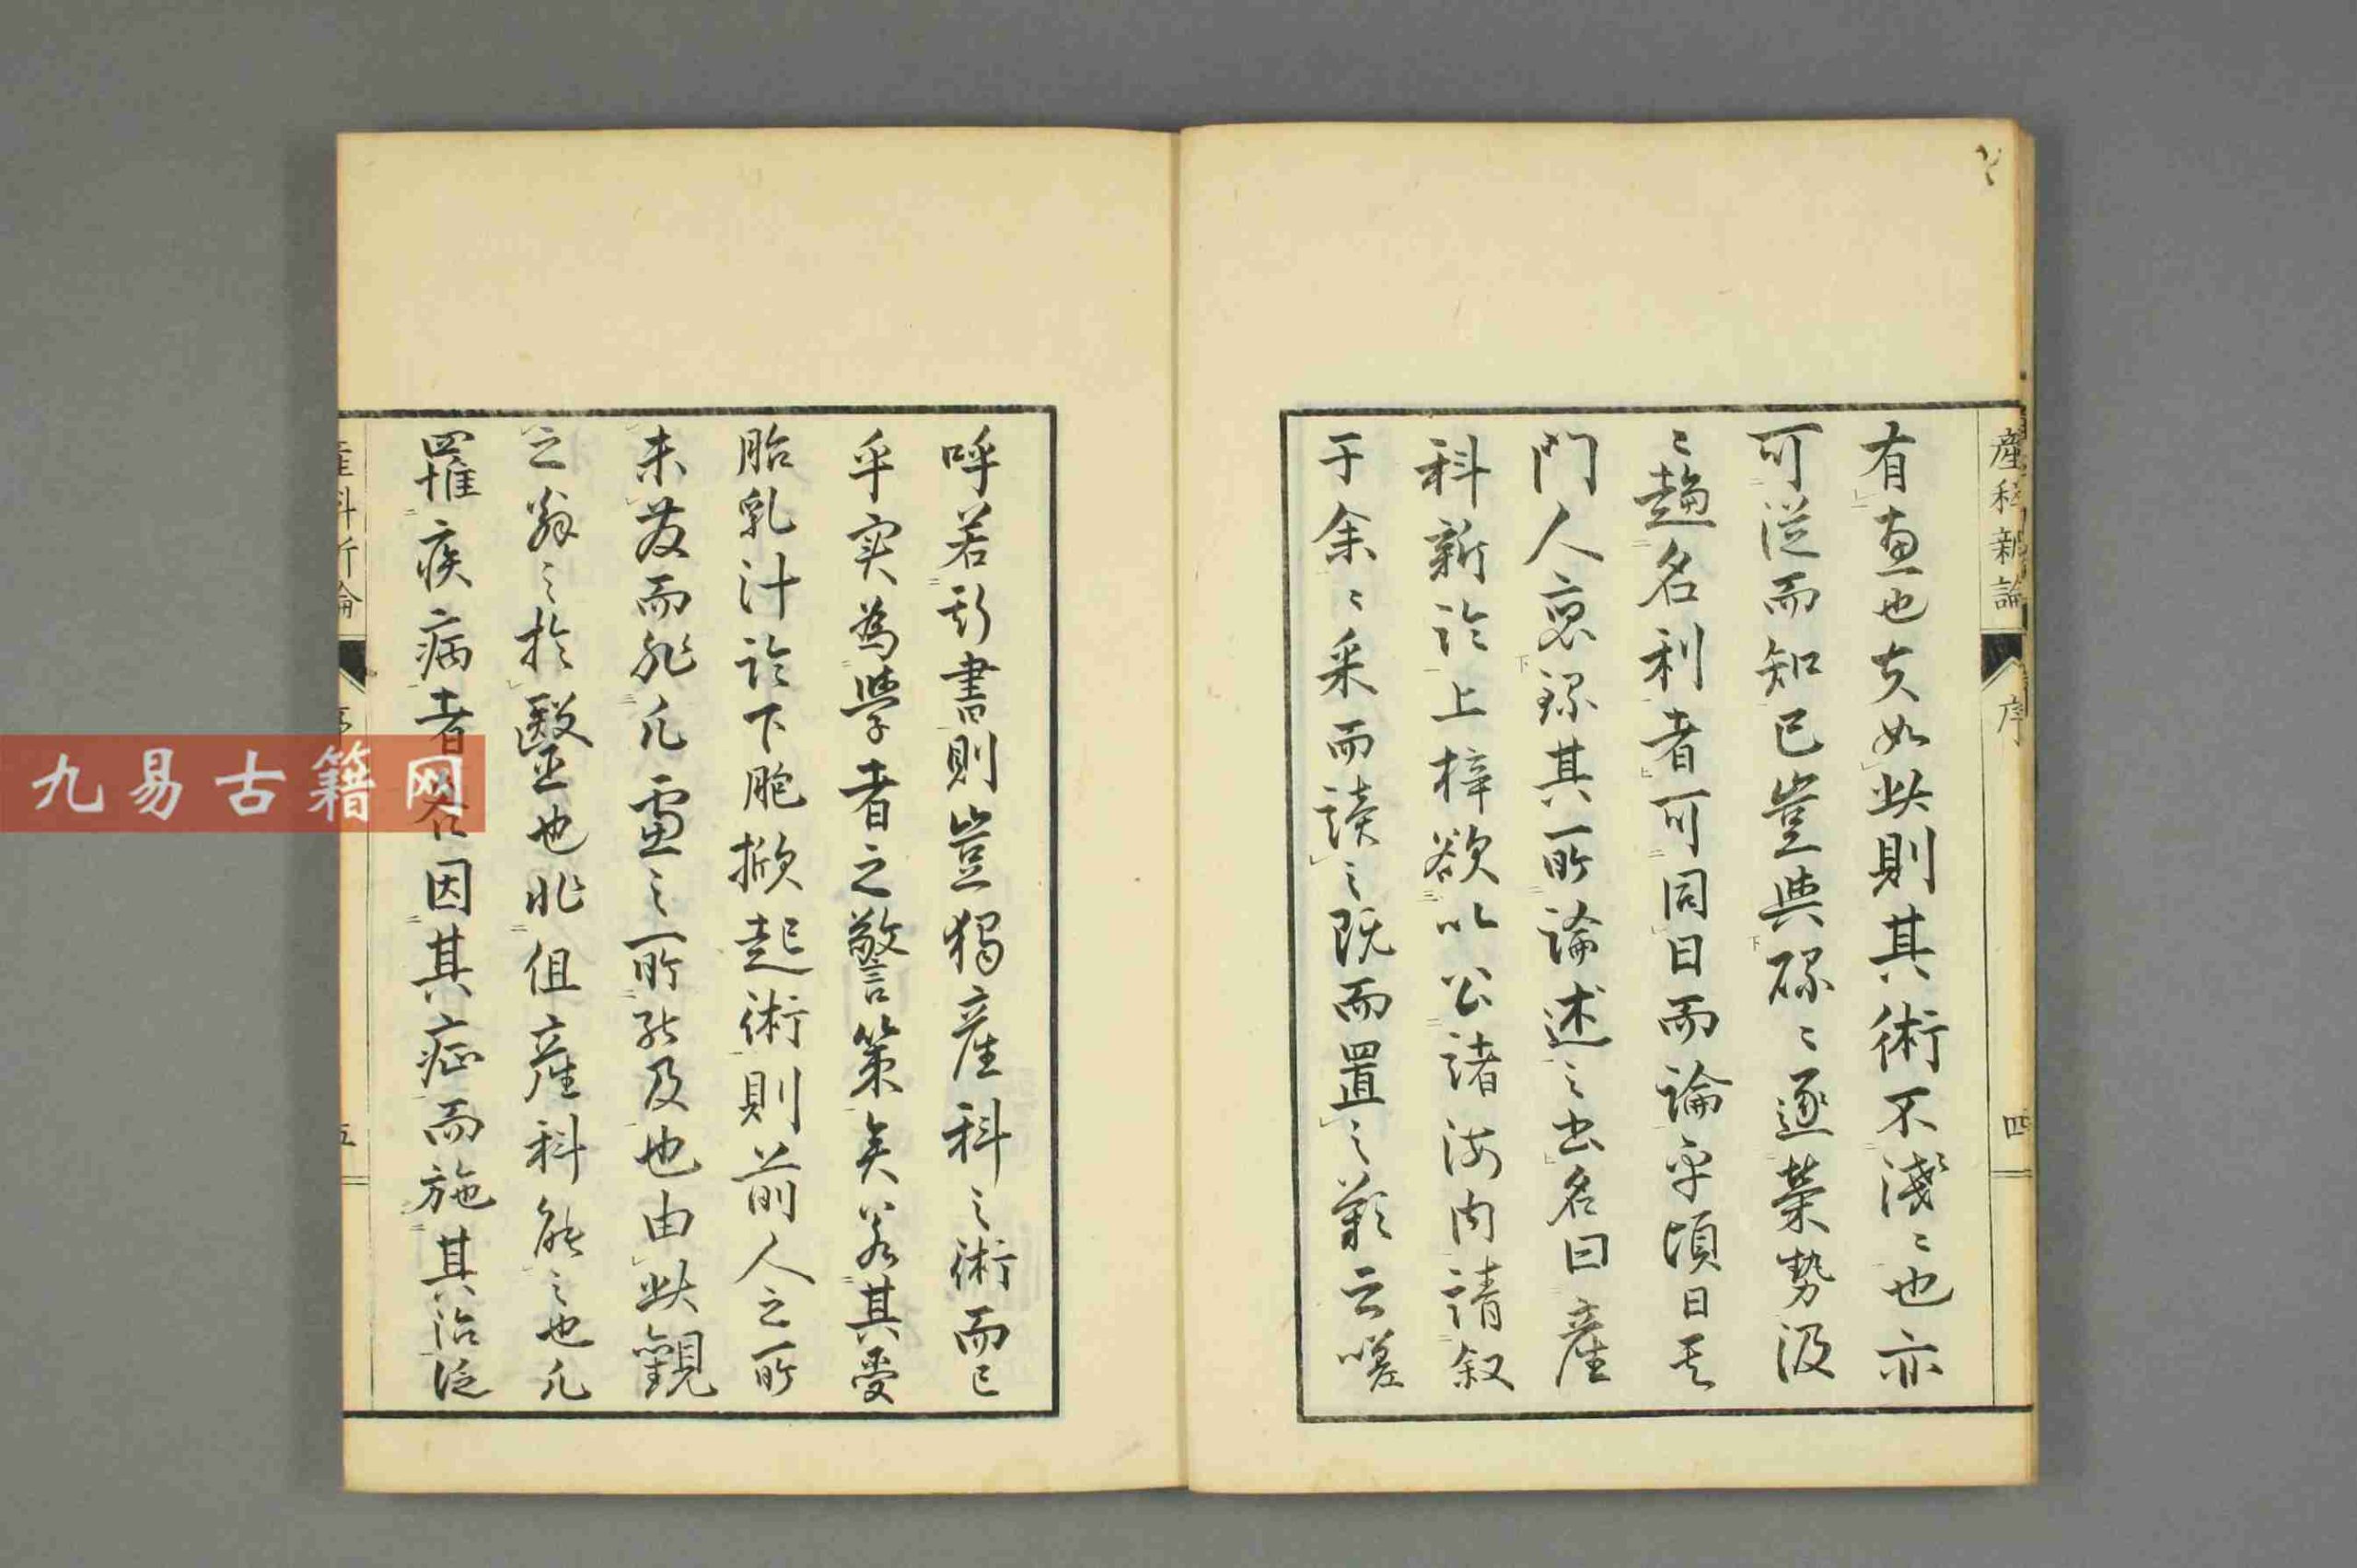 産科新論
序
四
有恵也夫如此則其術不淺〻也亦
可從而知已豈與碌〻逐榮勢汲
〻趨名利者可同日而論乎頃日其
門人裒録其所論述之出名曰産
科新論上梓欲以公諸海内請叙
于余〻采而讀之既而置之歎云嗟
呼若斯書則豈獨産科之術而已
乎実為學者之警策矣若其受
胎乳汁論下胞撳起術則前人之所
未發而非凡慮之所能及也由此觀
之翁之於醫也非但産科能之也凡
罹疾病者各因其症而施其治從
産科新論
五
九易古籍网